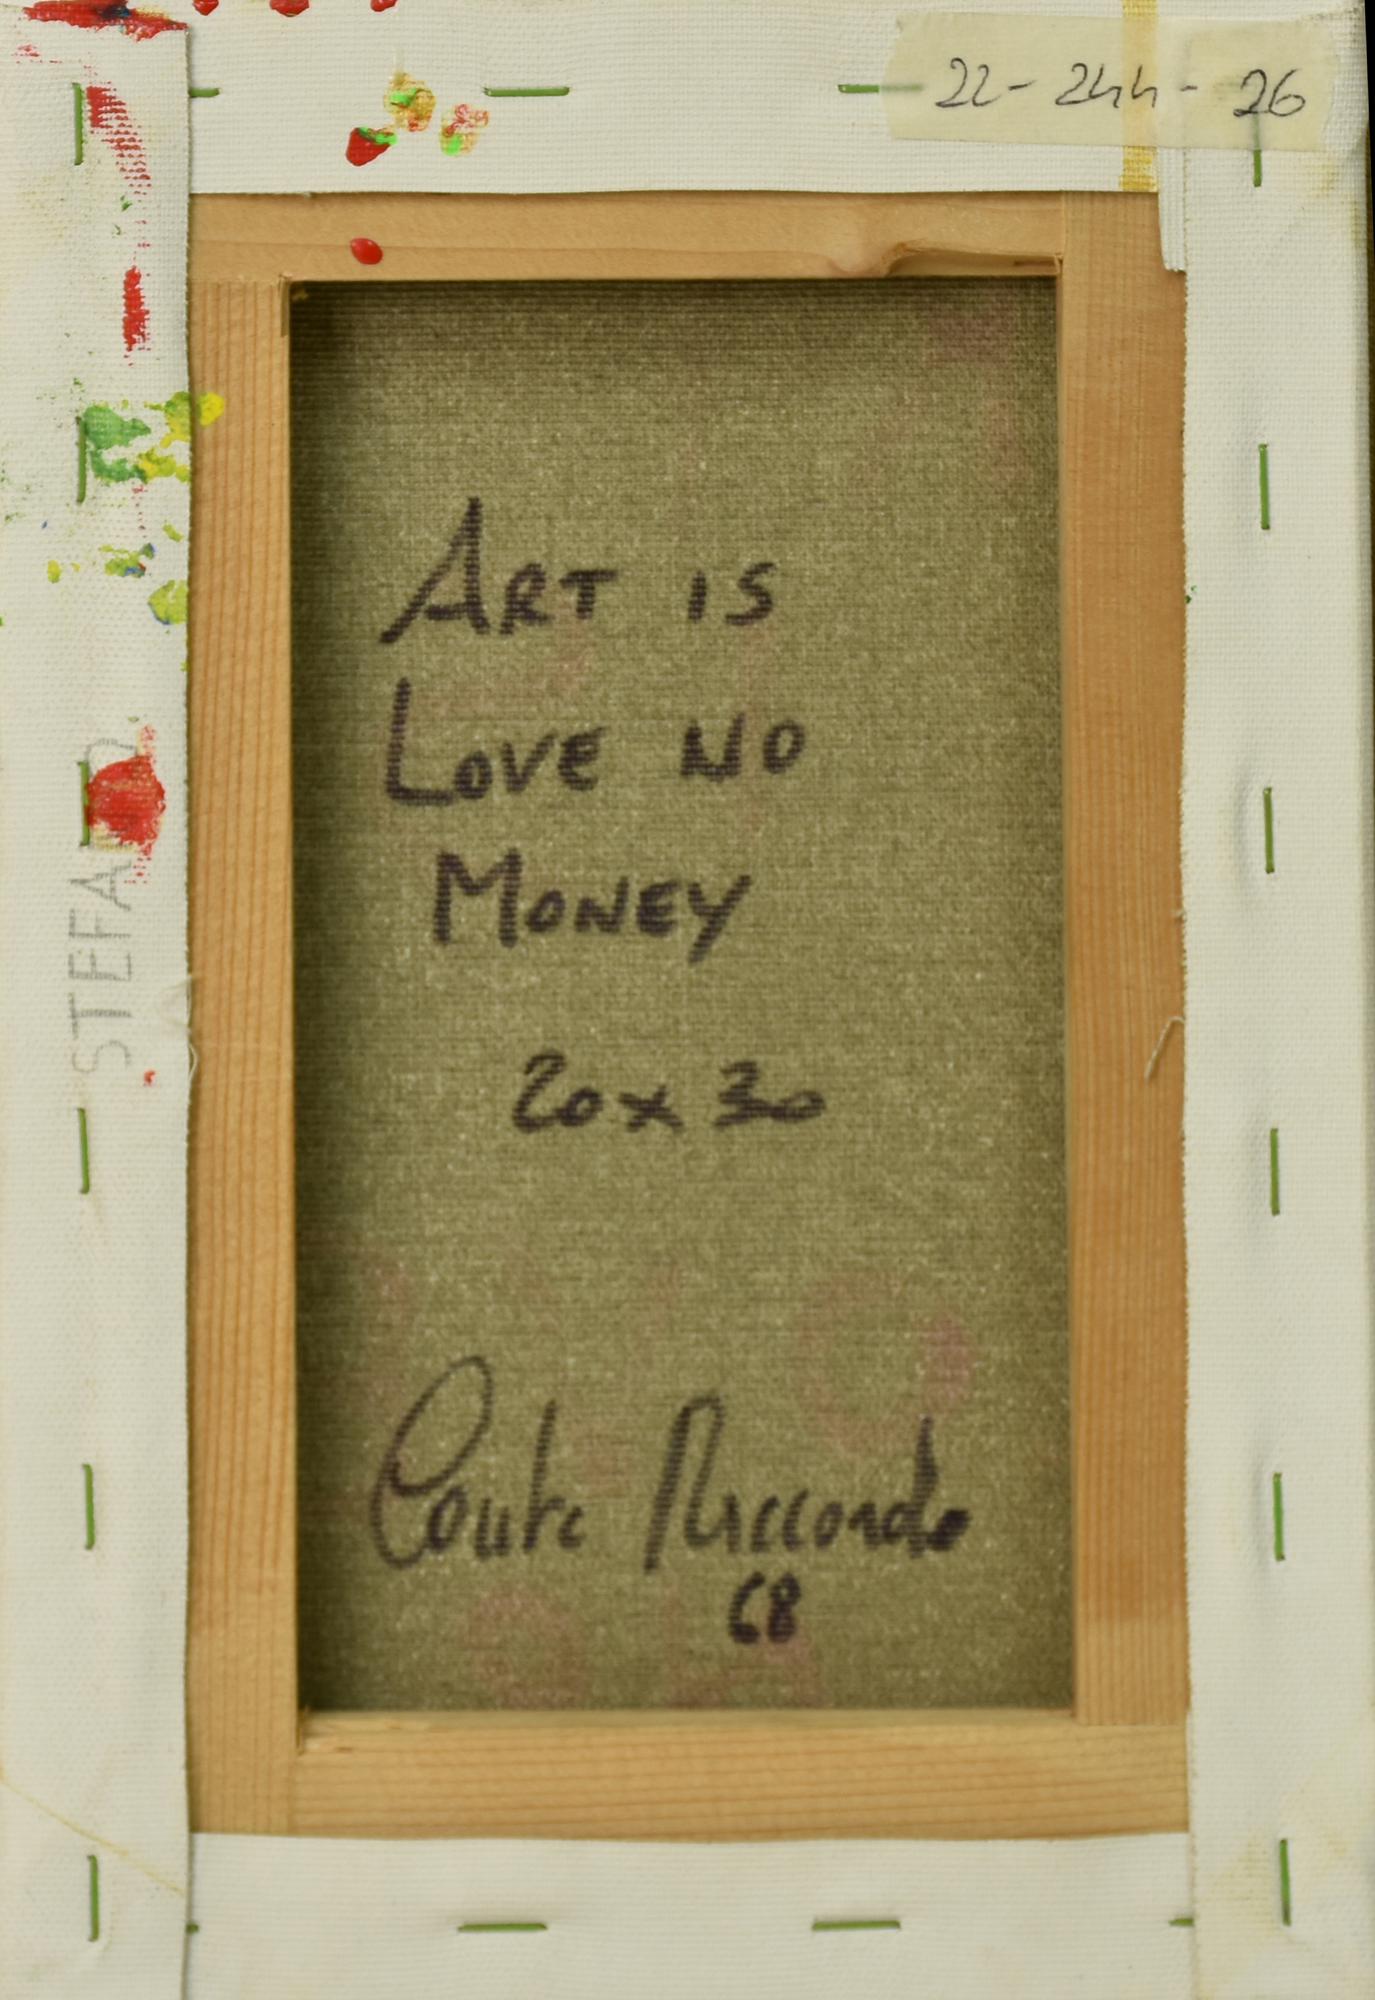 22-244-26
ART IS
LOVE NO
MONEY
20x30
Conte Riccardo
68
STEFANO